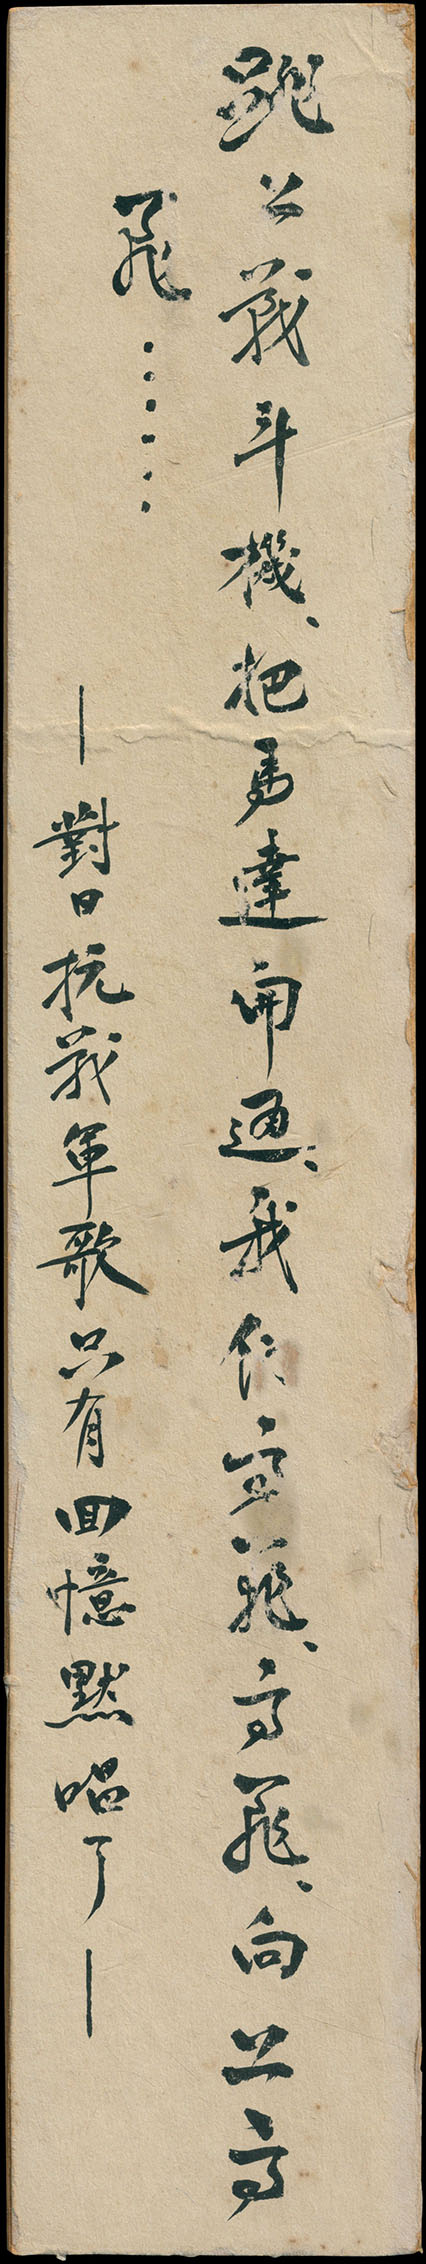 跳上战斗機、把马達開通、我们高飛、高飛、向上高
飛……
—對日抗战軍歌只有回憶默唱了—